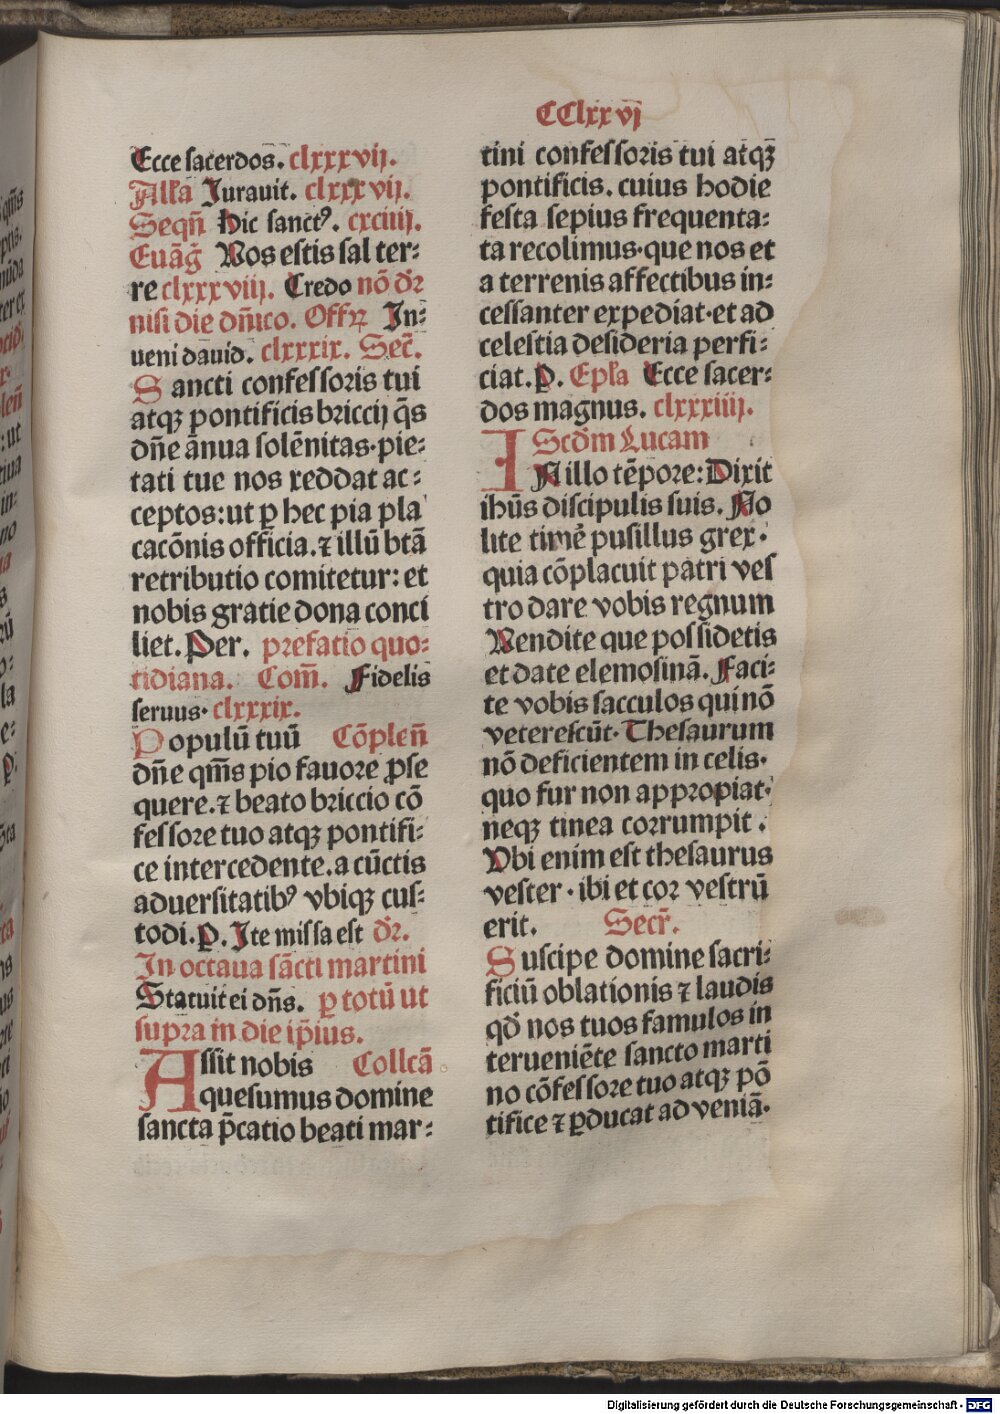 CClxxvj
Ecce sacerdos. clxxxvij.
Alla Jurauit. clxxxvij.
Seqn̄ Hic sanctꝰ. cxciiij.
Euāg̃ Vos estis sal ter⸗
re clxxxviij. Credo nō dr̄
nisi die dn̄ico. Offꝝ In⸗
ueni dauid. clxxxix. Sec̄.
Sancti confessoris tui
atqꝫ pontificis briccij q̄s
dn̄e ānua solēnitas·pie⸗
tati tue nos reddat ac⸗
ceptos:ut ꝑ hec pia pla
cacōnis officia.⁊ illū btā
retributio comitetur: et
nobis gratie dona conci
liet. Per. prefatio quo⸗
tidiana. Com̄. Fidelis
seruus· clxxxix.
Populū tuū Cōplen̄
dn̄e qm̄s pio fauore ꝓse
quere.⁊ beato briccio cō
fessore tuo atqꝫ pontifi⸗
ce intercedente.a cūctis
aduersitatibꝰ vbiqꝫ cus⸗
todi.P. Ite missa est dr̄.
In octaua sācti martini
Statuit ei dn̄s. ꝑ totū ut
supra in die ip̄ius.
Assit nobis Collcā
quesumus domine
sancta p̄catio beati mar⸗
tini confessoris tui atqꝫ
pontificis. cuius hodie
festa sepius frequenta⸗
ta recolimus·que nos et
a terrenis affectibus in⸗
cessanter expediat·et ad
celestia desideria perfi⸗
ciat.P. Epla Ecce sacer⸗
dos magnus. clxxxiiij.
Scdm̄ Lucam
IN illo tēpore: Dixit
ihūs discipulis suis. No
lite timē pusillus grex·
quia cōplacuit patri ves
tro dare vobis regnum
Vendite que possidetis
et date elemosinā. Faci⸗
te vobis sacculos qui nō
veterescūt· Thesaurum
nō deficientem in celis·
quo fur non appropiat·
neqꝫ tinea corrumpit.
Vbi enim est thesaurus
vester· ibi et cor vestrū
erit. Secr̄.
Suscipe domine sacri⸗
ficiū oblationis ⁊ laudis
qd̄ nos tuos famulos in
terueniēte sancto marti
no cōfessore tuo atqꝫ pō
tifice ⁊ ꝑducat ad veniā·
Digitalisierung gefördert durch die Deutsche Forschungsgemeinschaft - DFG